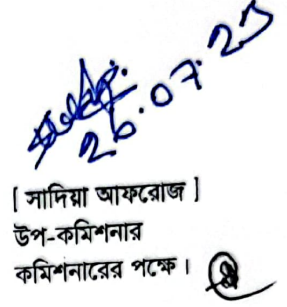 26.07.23
[ সাদিয়া আফরোজ ]
উপ-কমিশনার
কমিশনারের পক্ষে।